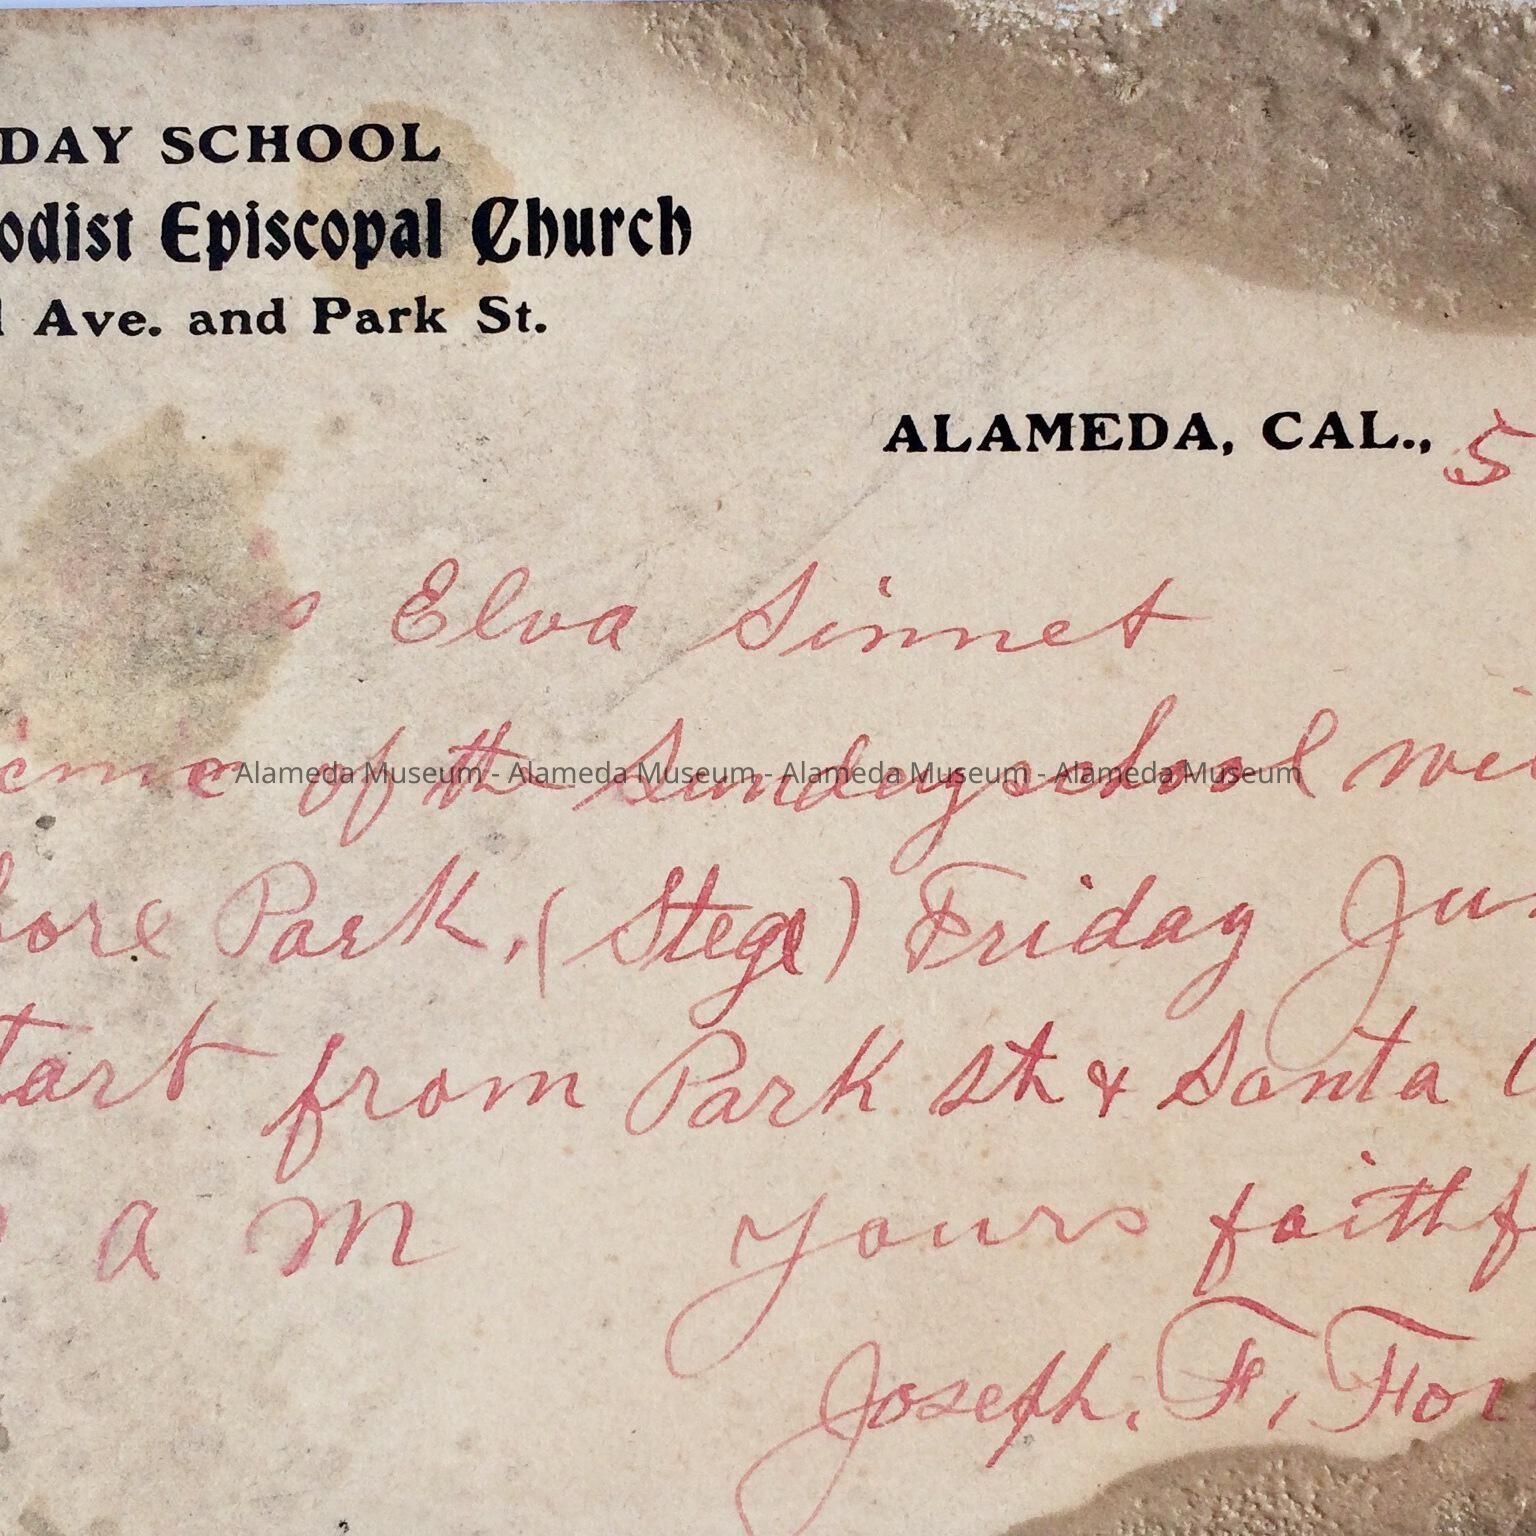 DAY SCHOOL
odist Episcopal Church
l Ave. and Park St.
ALAMEDA, CAL., 5
s Elva Sinnet
icnic of the Sundayschool wi
Alameda Museum - Alameda Museum - Alameda Museum - Alameda Museum
hore Park, (Stege) Friday Jun
tart from Park St & Santa C
a m yours faithf
Joseph. F. For